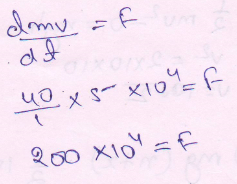 dmv/dt = F
40/1 × 5 × 10⁴ = F
200 × 10⁴ = F